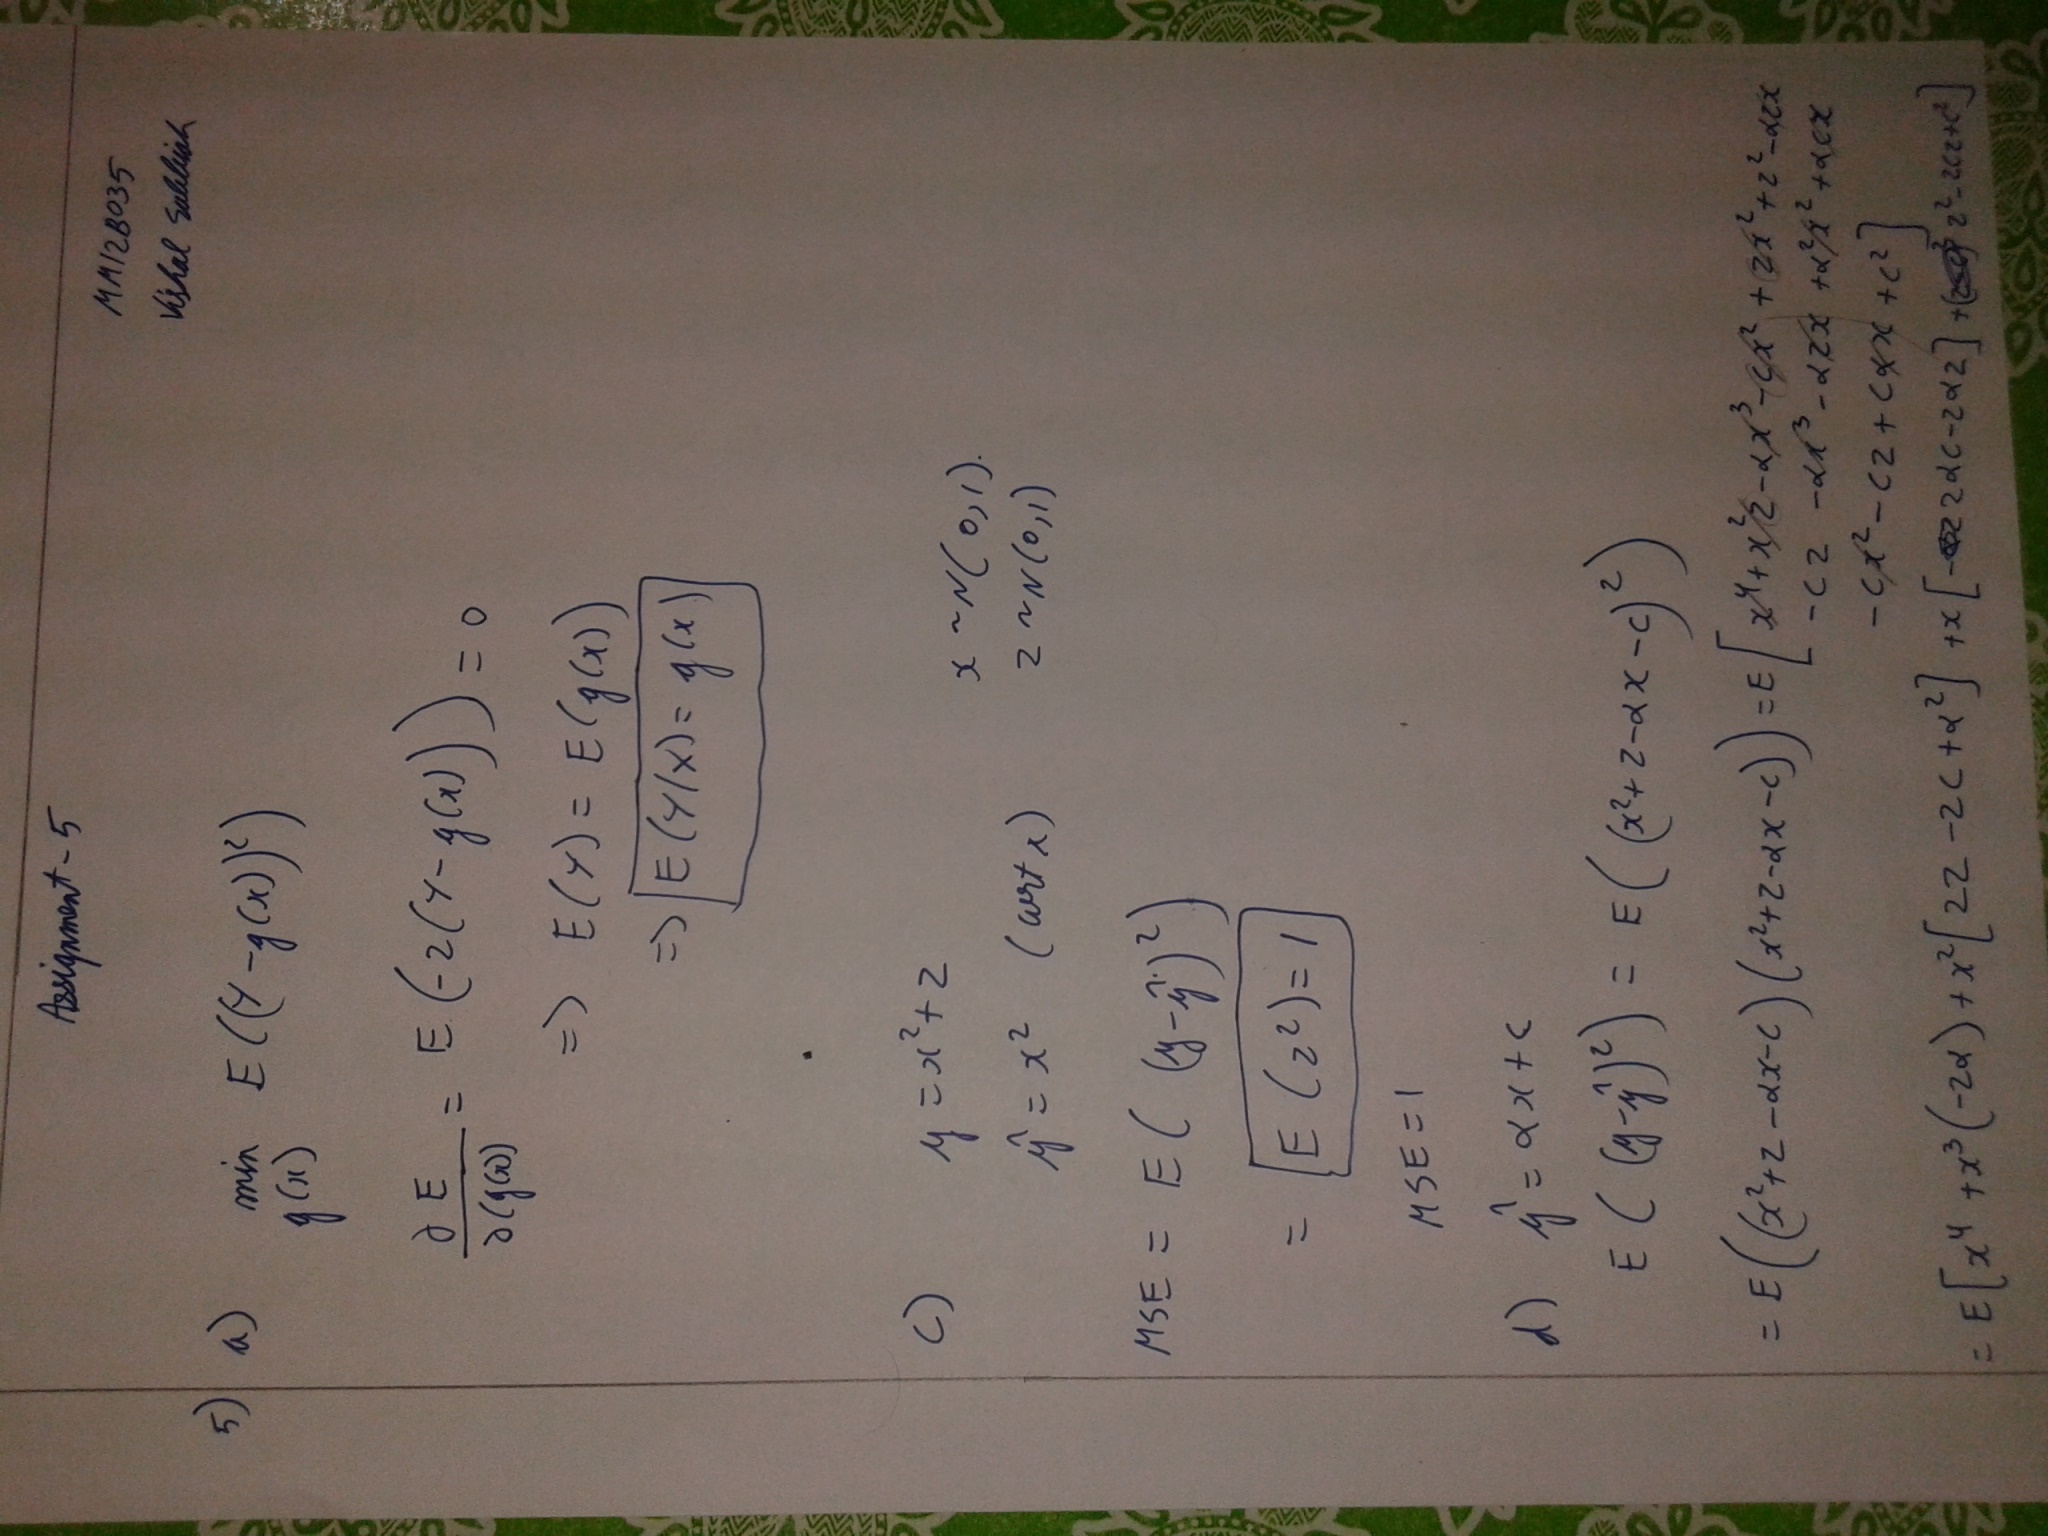 Assignment-5
MM12B035
Vishal
5) a) min g(x) E((Y-g(x))²)
∂E/∂(g(x)) = E(-2(Y-g(x))) = 0
=) E(Y) = E(g(x))
=) E(Y/X) = g(x)
c) y = x² + z x ~ N(0,1).
ŷ = x² (wrt x) z ~ N(0,1)
MSE = E((y-ŷ)²)
= E(z²) = 1
MSE = 1
d) ŷ = αx + c
E((y-ŷ)²) = E((x²+z-αx-c)²)
= E((x²+z-αx-c)(x²+z-αx-c)) = E[x⁴+x²z-αx³-cx²+zx²+z²-αzx
-cz-αx³-αzx+α²x²+αcx
-cx²-cz+cαx+c²]
= E[x⁴+x³(-2α)+x²[2z-2c+α²]+x[2αc-2αz]+z²-2cz+c²]